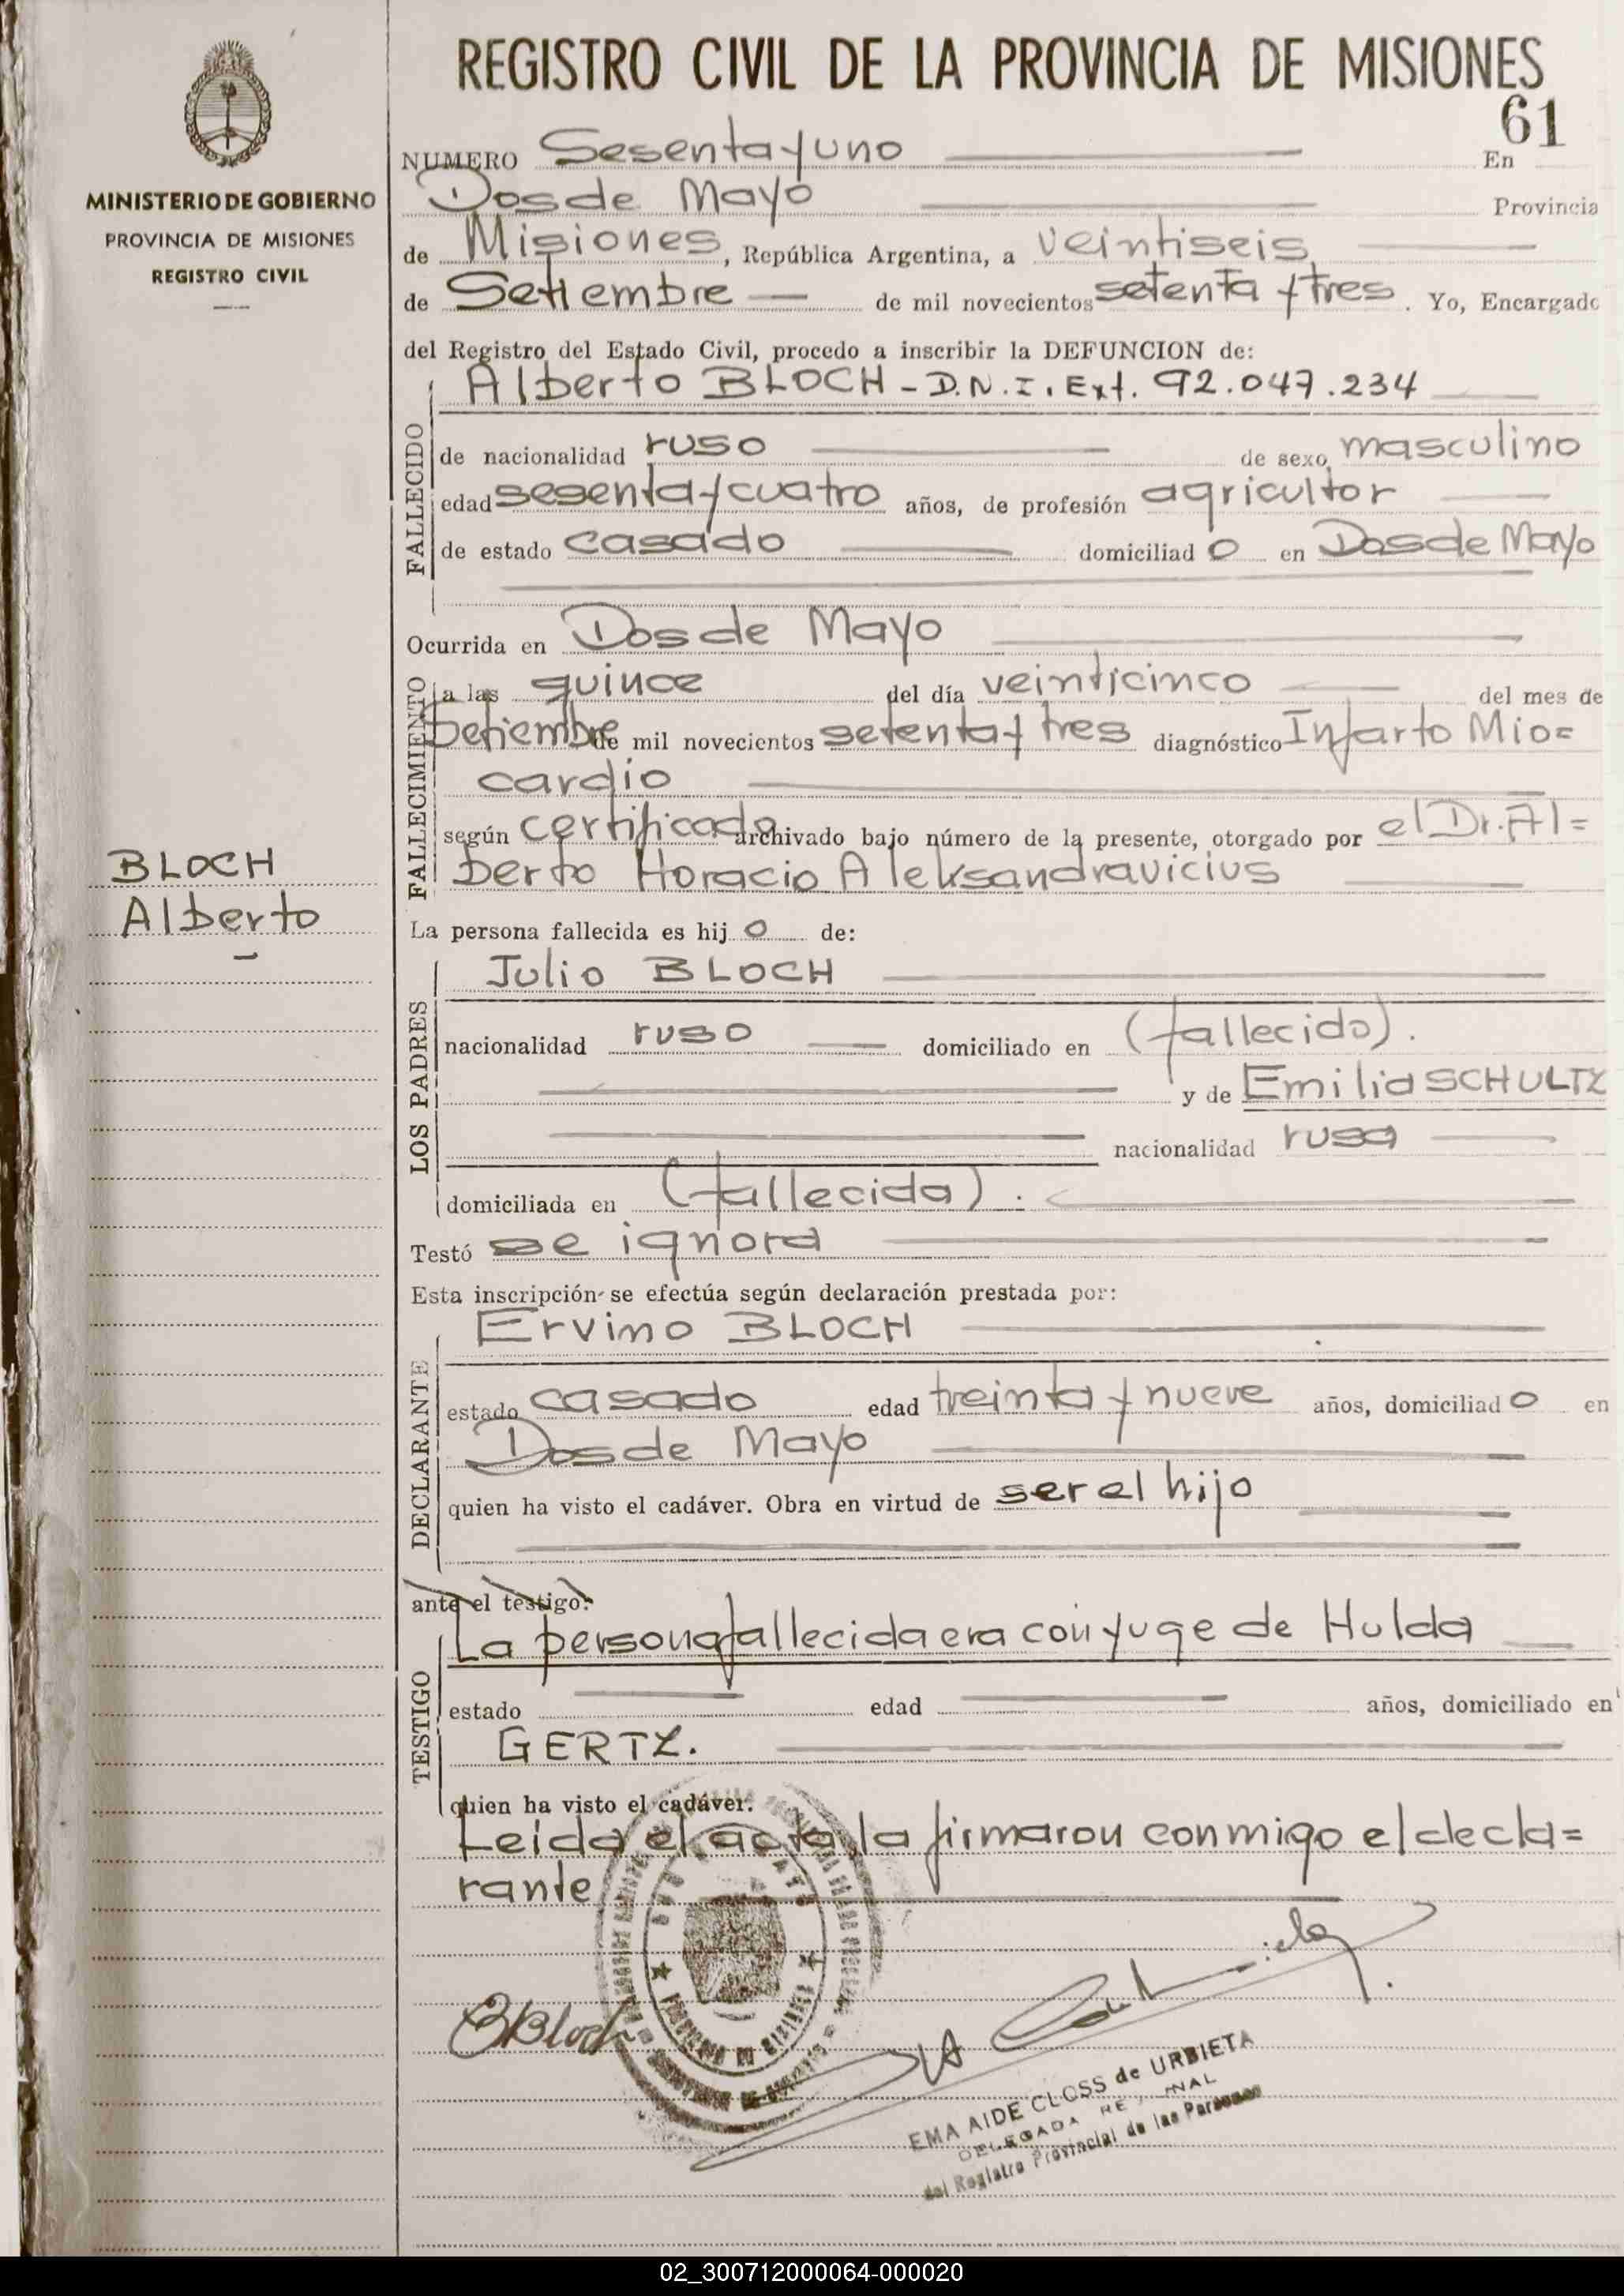 REGISTRO CIVIL DE LA PROVINCIA DE MISIONES
61
MINISTERIO DE GOBIERNO
PROVINCIA DE MISIONES
REGISTRO CIVIL
BLOCH
Alberto
NUMERO Sesenta y uno En
Dos de Mayo Provincia
de Misiones, República Argentina, a veintiseis
de Setiembre de mil novecientos setenta y tres. Yo, Encargado
del Registro del Estado Civil, procedo a inscribir la DEFUNCION de:
Alberto BLOCH - D.N.I. Ext. 92.047.234
FALLECIDO
de nacionalidad ruso de sexo masculino
edad sesenta y cuatro años, de profesión agricultor
de estado casado domiciliado en Dos de Mayo
Ocurrida en Dos de Mayo
FALLECIMIENTO
a las quince del día veinticinco del mes de
Setiembre de mil novecientos setenta y tres diagnóstico Infarto Mio=
cardio
según certificado archivado bajo número de la presente, otorgado por el Dr. Al=
berto Horacio Aleksandravicius
La persona fallecida es hijo de:
LOS PADRES
Julio BLOCH
nacionalidad ruso domiciliado en (fallecido).
y de Emilia SCHULTZ
nacionalidad rusa
domiciliada en (fallecida).
Testó se ignora
Esta inscripción se efectúa según declaración prestada por:
DECLARANTE
Ervino BLOCH
estado casado edad treinta y nueve años, domiciliado en
Dos de Mayo
quien ha visto el cadáver. Obra en virtud de ser el hijo
ante el testigo:
TESTIGO
La persona fallecida era conyuge de Hulda
estado edad años, domiciliado en
GERTZ.
quien ha visto el cadáver.
Leida el acta, la firmaron conmigo el decla=
rante
Bloch
EMA AIDE CLOSS de URBIETA
DELEGADA
del Registro Provincial de las Personas
02_300712000064-000020